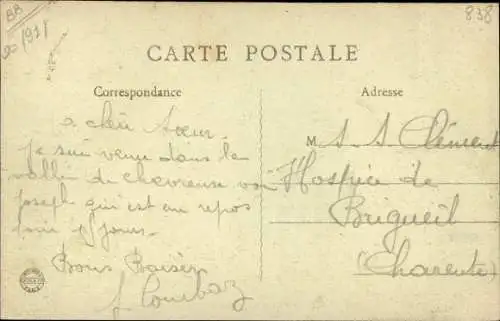 BB
1921
838
CARTE POSTALE
Correspondance
Adresse
chèr Sœur
je suis venu dans la
vallée de chevreuse voir
Joseph qui est au repos
pour jours
Bons Baisers
M S. S. Clément
Hospice de
Brigueil
(Charente)